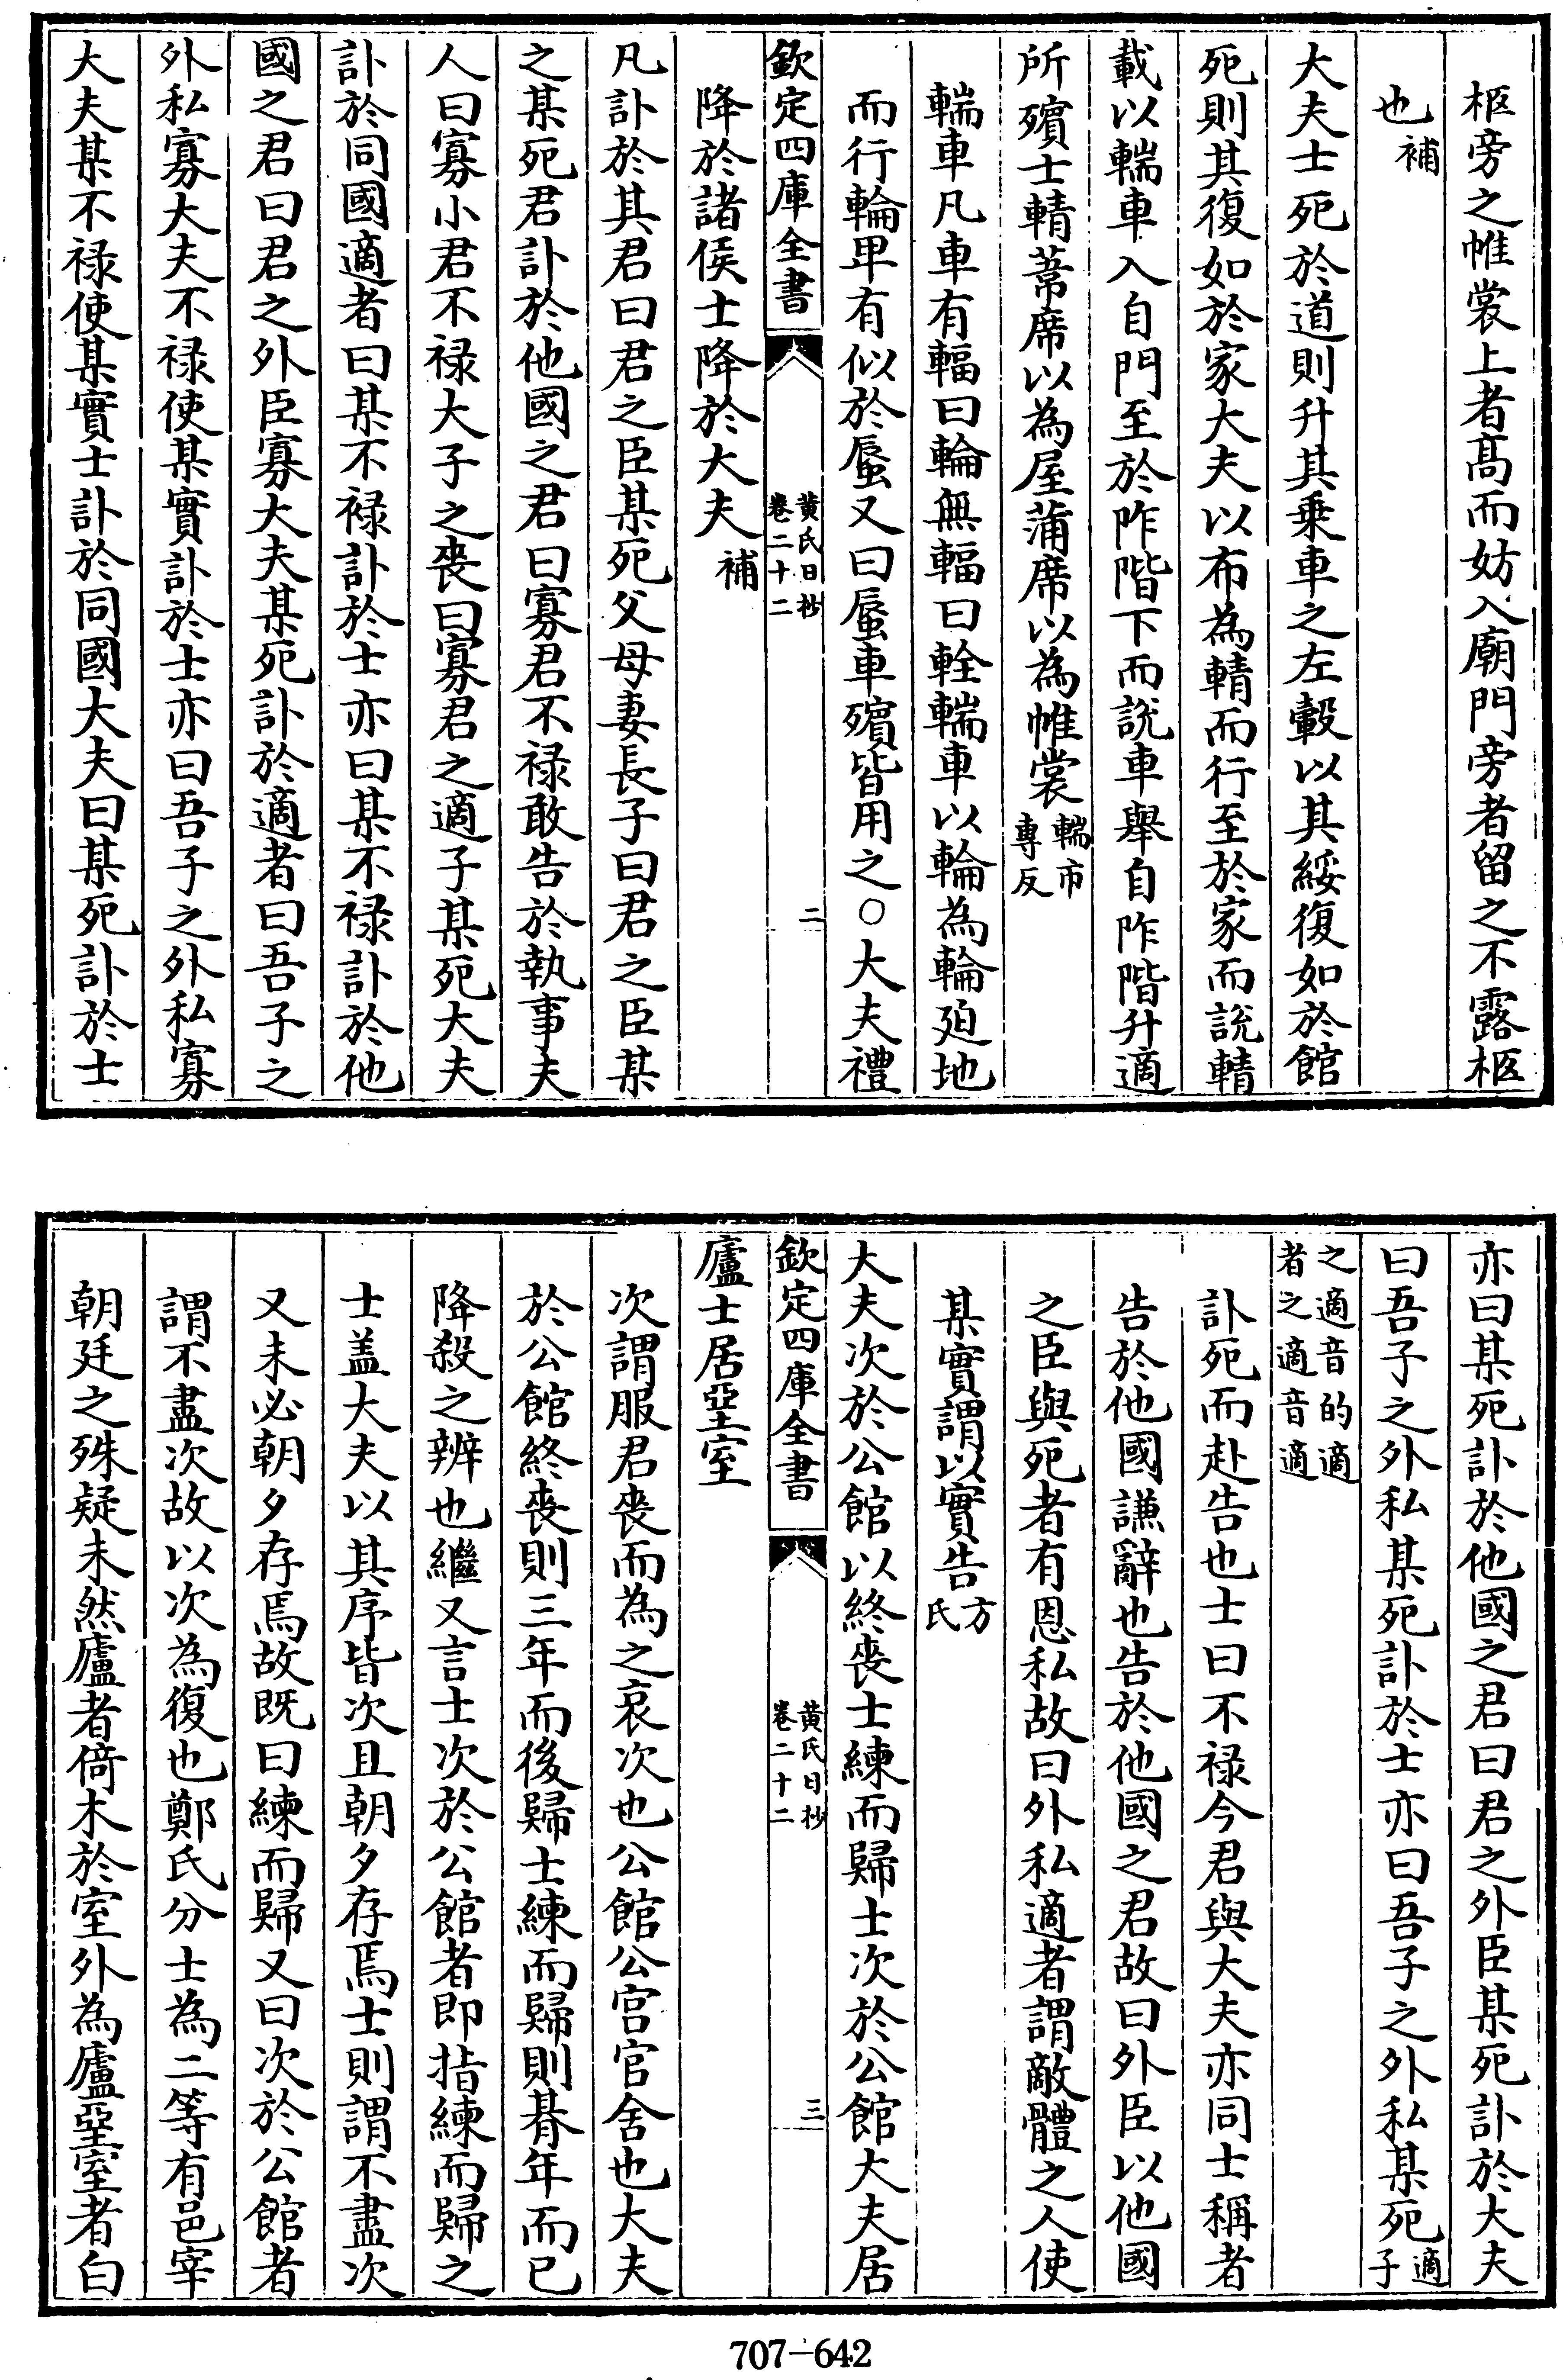 柩旁之帷裳上者髙而妨入廟門旁者留之不露柩
也補
大夫士死於道則升其乗車之左轂以其綏復如於館
死則其復如於家大夫以布為輤而行至於家而說輤
載以輲車入自門至於阼階下而說車舉自阼階升適
所殯士輤葦席以為屋蒲席以為帷裳輲市專反
輲車凡車有輻曰輪無輻曰輇輲車以輪為輪廹地
而行輪卑有似於蜃又曰蜃車殯皆用之○大夫禮
欽定四庫全書 黄氏日抄 卷二十二 二
降於諸侯士降於大夫補
凡訃於其君曰君之臣某死父母妻長子曰君之臣某
之某死君訃於他國之君曰寡君不禄敢告於執事夫
人曰寡小君不禄大子之喪曰寡君之適子某死大夫
訃於同國適者曰某不禄訃於士亦曰某不禄訃於他
國之君曰君之外臣寡大夫某死訃於適者曰吾子之
外私寡大夫不禄使某實訃於士亦曰吾子之外私寡
大夫某不禄使某實士訃於同國大夫曰某死訃於士
亦曰某死訃於他國之君曰君之外臣某死訃於大夫
曰吾子之外私某死訃於士亦曰吾子之外私某死適子
之適音的適者之適音適
訃死而赴告也士曰不禄今君與大夫亦同士稱者
告於他國謙辭也告於他國之君故曰外臣以他國
之臣與死者有恩私故曰外私適者謂敵體之人使
某實謂以實告方氏
大夫次於公館以終喪士練而歸士次於公館大夫居
欽定四庫全書 黄氏日抄 卷二十二 三
廬士居堊室
次謂服君喪而為之哀次也公館公宫官舍也大夫
於公館終喪則三年而後歸士練而歸則朞年而已
降殺之辨也繼又言士次於公館者即指練而歸之
士盖大夫以其序皆次且朝夕存焉士則謂不盡次
又未必朝夕存焉故既曰練而歸又曰次於公館者
謂不盡次故以次為復也鄭氏分士為二等有邑宰
朝廷之殊疑未然廬者倚木於室外為廬堊室者白
707-642